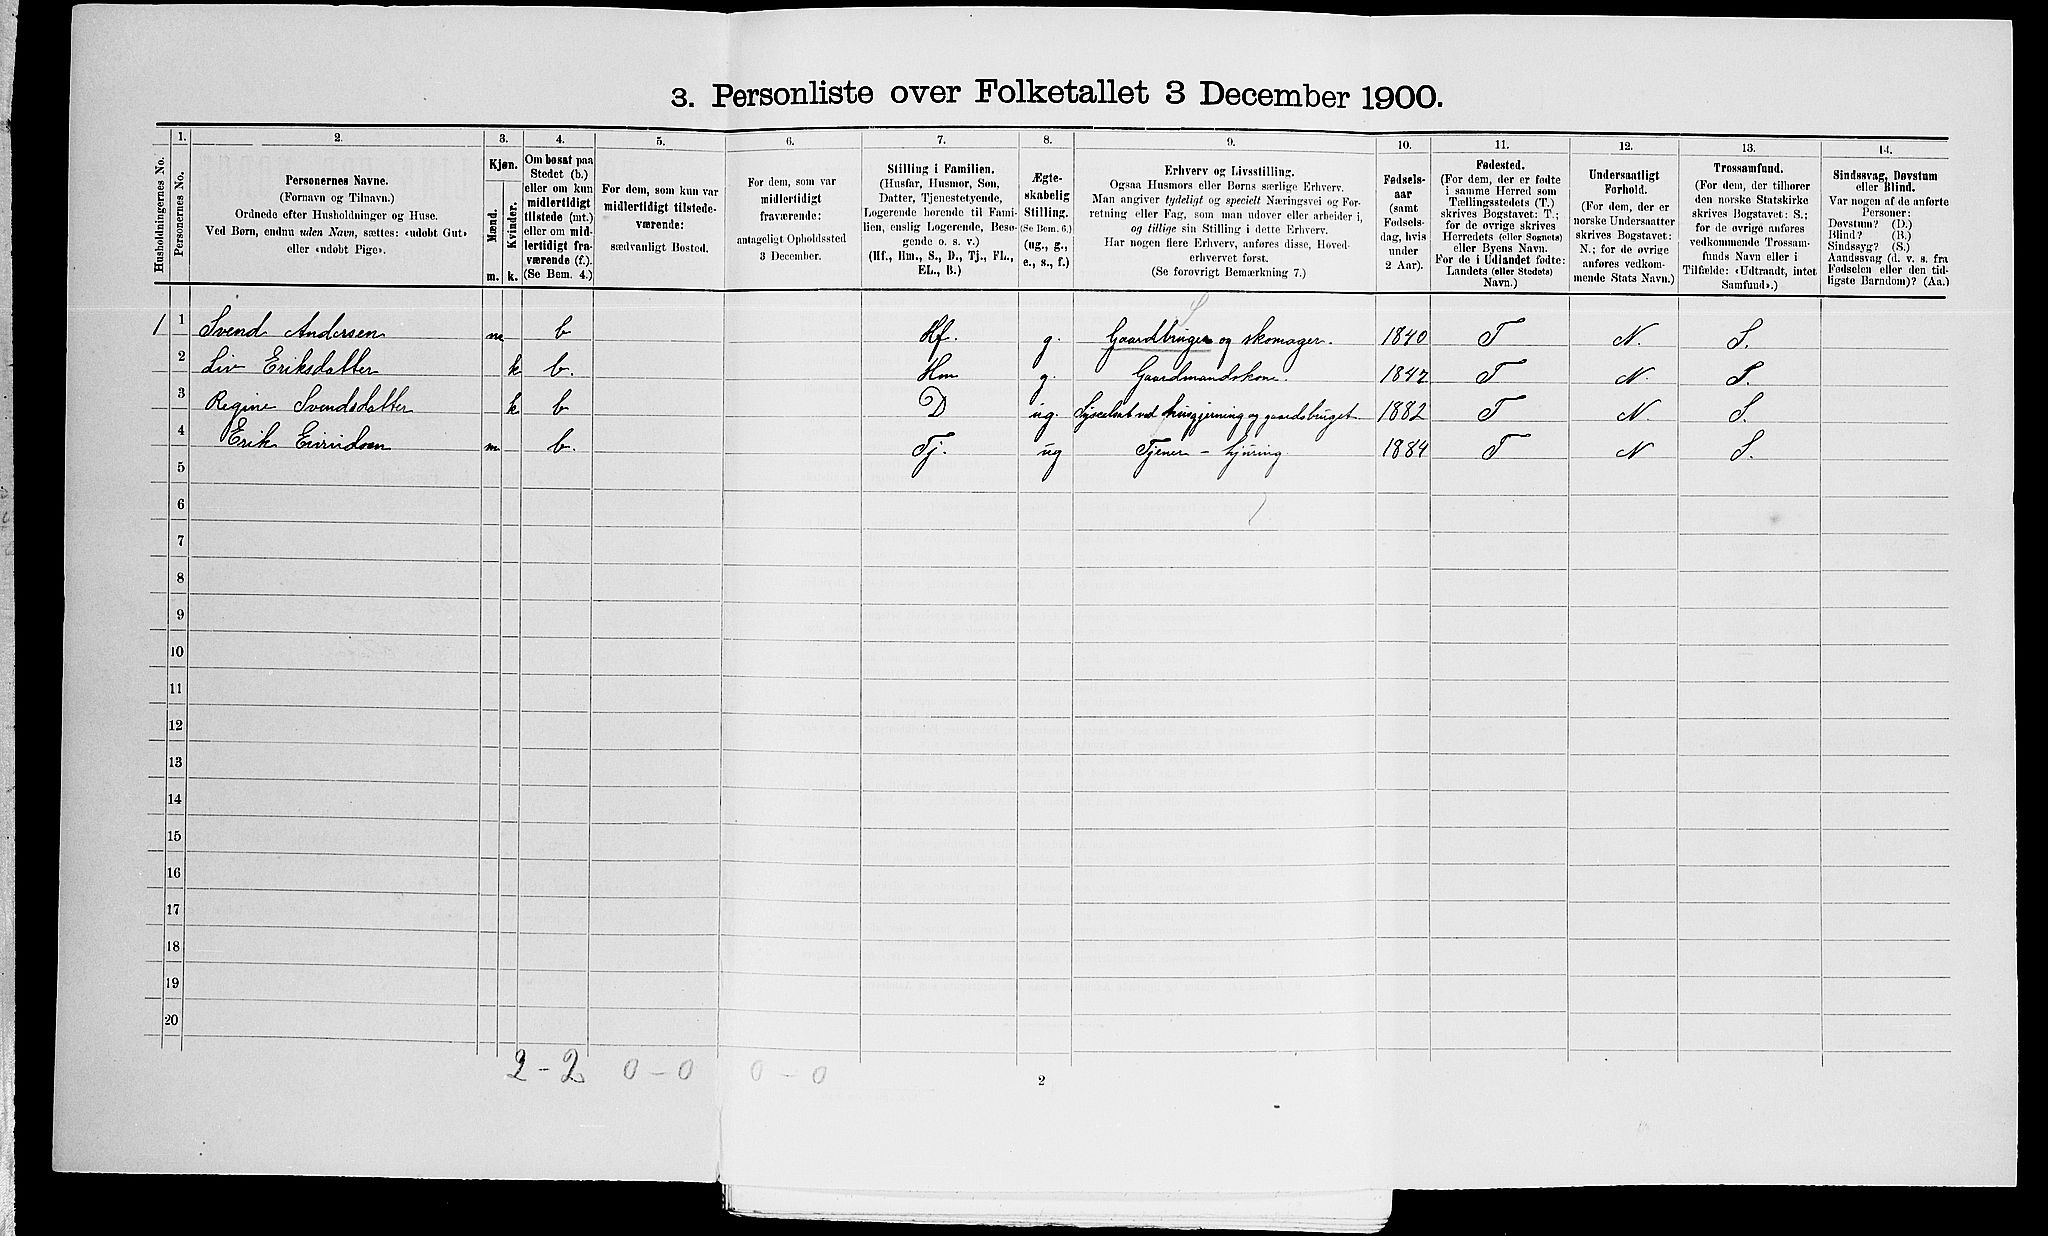 3. Personliste over Folketallet 3 December 1900.
1. 2. 3. 4. 5. 6. 7. 8. 9. 10. 11. 12. 13. 14.
Husholdningernes No.
Personernes No.
Personernes Navne.
(Fornavn og Tilnavn.)
Ordnede efter Husholdninger og Huse.
Ved Børn, endnu uden Navn, sættes: «udøbt Gut»
eller «udøbt Pige».
Kjøn.
Mænd.
Kvinder.
m. k.
Om bosat paa
Stedet (b.)
eller om kun
midlertidigt
tilstede (mt.)
eller om mid-
lertidigt fra-
værende (f.).
(Se Bem. 4.)
For dem, som kun var
midlertidigt tilstede-
værende:
sædvanligt Bosted.
For dem, som var
midlertidigt
fraværende:
antageligt Opholdssted
3 December.
Stilling i Familien.
(Husfar, Husmor, Søn,
Datter, Tjenestetyende,
Logerende hørende til Fami-
lien, enslig Logerende, Besø-
gende o. s. v.)
(Hf., Hm., S., D., Tj., FL.,
EL., B.)
Ægte-
skabelig
Stilling.
(Se Bem. 6.)
(ug., g.,
e., s., f.)
Erhverv og Livsstilling.
Ogsaa Husmors eller Børns særlige Erhverv.
Man angiver tydeligt og specielt Næringsvei og For-
retning eller Fag, som man udøver eller arbeider i,
og tillige sin Stilling i dette Erhverv.
Har nogen flere Erhverv, anføres disse, Hoved-
erhvervet først.
(Se forøvrigt Bemærkning 7.)
Fødsels-
aar
(samt
Fødsels-
dag, hvis
under
2 Aar).
Fødested.
(For dem, der er fødte
i samme Herred som
Tællingsstedets (T.)
skrives Bogstavet: T.;
for de øvrige skrives
Herredets (eller Sognets)
eller Byens Navn.
For de i Udlandet fødte:
Landets (eller Stedets)
Navn.)
Undersaatligt
Forhold.
(For dem, der er
norske Undersaatter
skrives Bogstavet:
N.; for de øvrige
anføres vedkom-
mende Stats Navn.)
Trossamfund.
(For dem, der tilhører
den norske Statskirke
skrives Bogstavet: S.;
for de øvrige anføres
vedkommende Trossam-
funds Navn eller i
Tilfælde: «Udtraadt, intet
Samfund».)
Sindssvag, Døvstum
eller Blind.
Var nogen af de anførte
Personer:
Døvstum? (D.)
Blind? (B.)
Sindssyg? (S.)
Aandssvag (d. v. s. fra
Fødselen eller den tid-
ligste Barndom)? (Aa.)
1 1 Svend Andersen m b Hf. g. Gaardbruger og skomager. 1840 T N. S.
2 Liv Eriksdatter k b. Hm g. Gaardmandskone. 1847 T N. S.
3 Regine Svendsdatter k b D ug. Sysselsat ved husgjerning og gaardsbruget 1882 T N S.
4 Erik Eivindsen m b. Tj. ug Tjener - 1884 T N S.
5
6
7
8
9
10
11
12
13
14
15
16
17
18
19
20
2 - 2 0 - 0 0 - 0
2